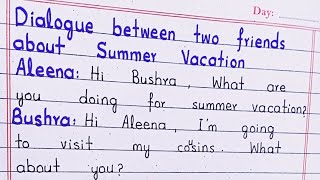 Day:
Dialogue between two friends
about Summer Vacation
Aleena: Hi Bushra, What are
you doing for summer vacation?
Bushra: Hi Aleena, I'm going
to visit my cousins. What
about you?